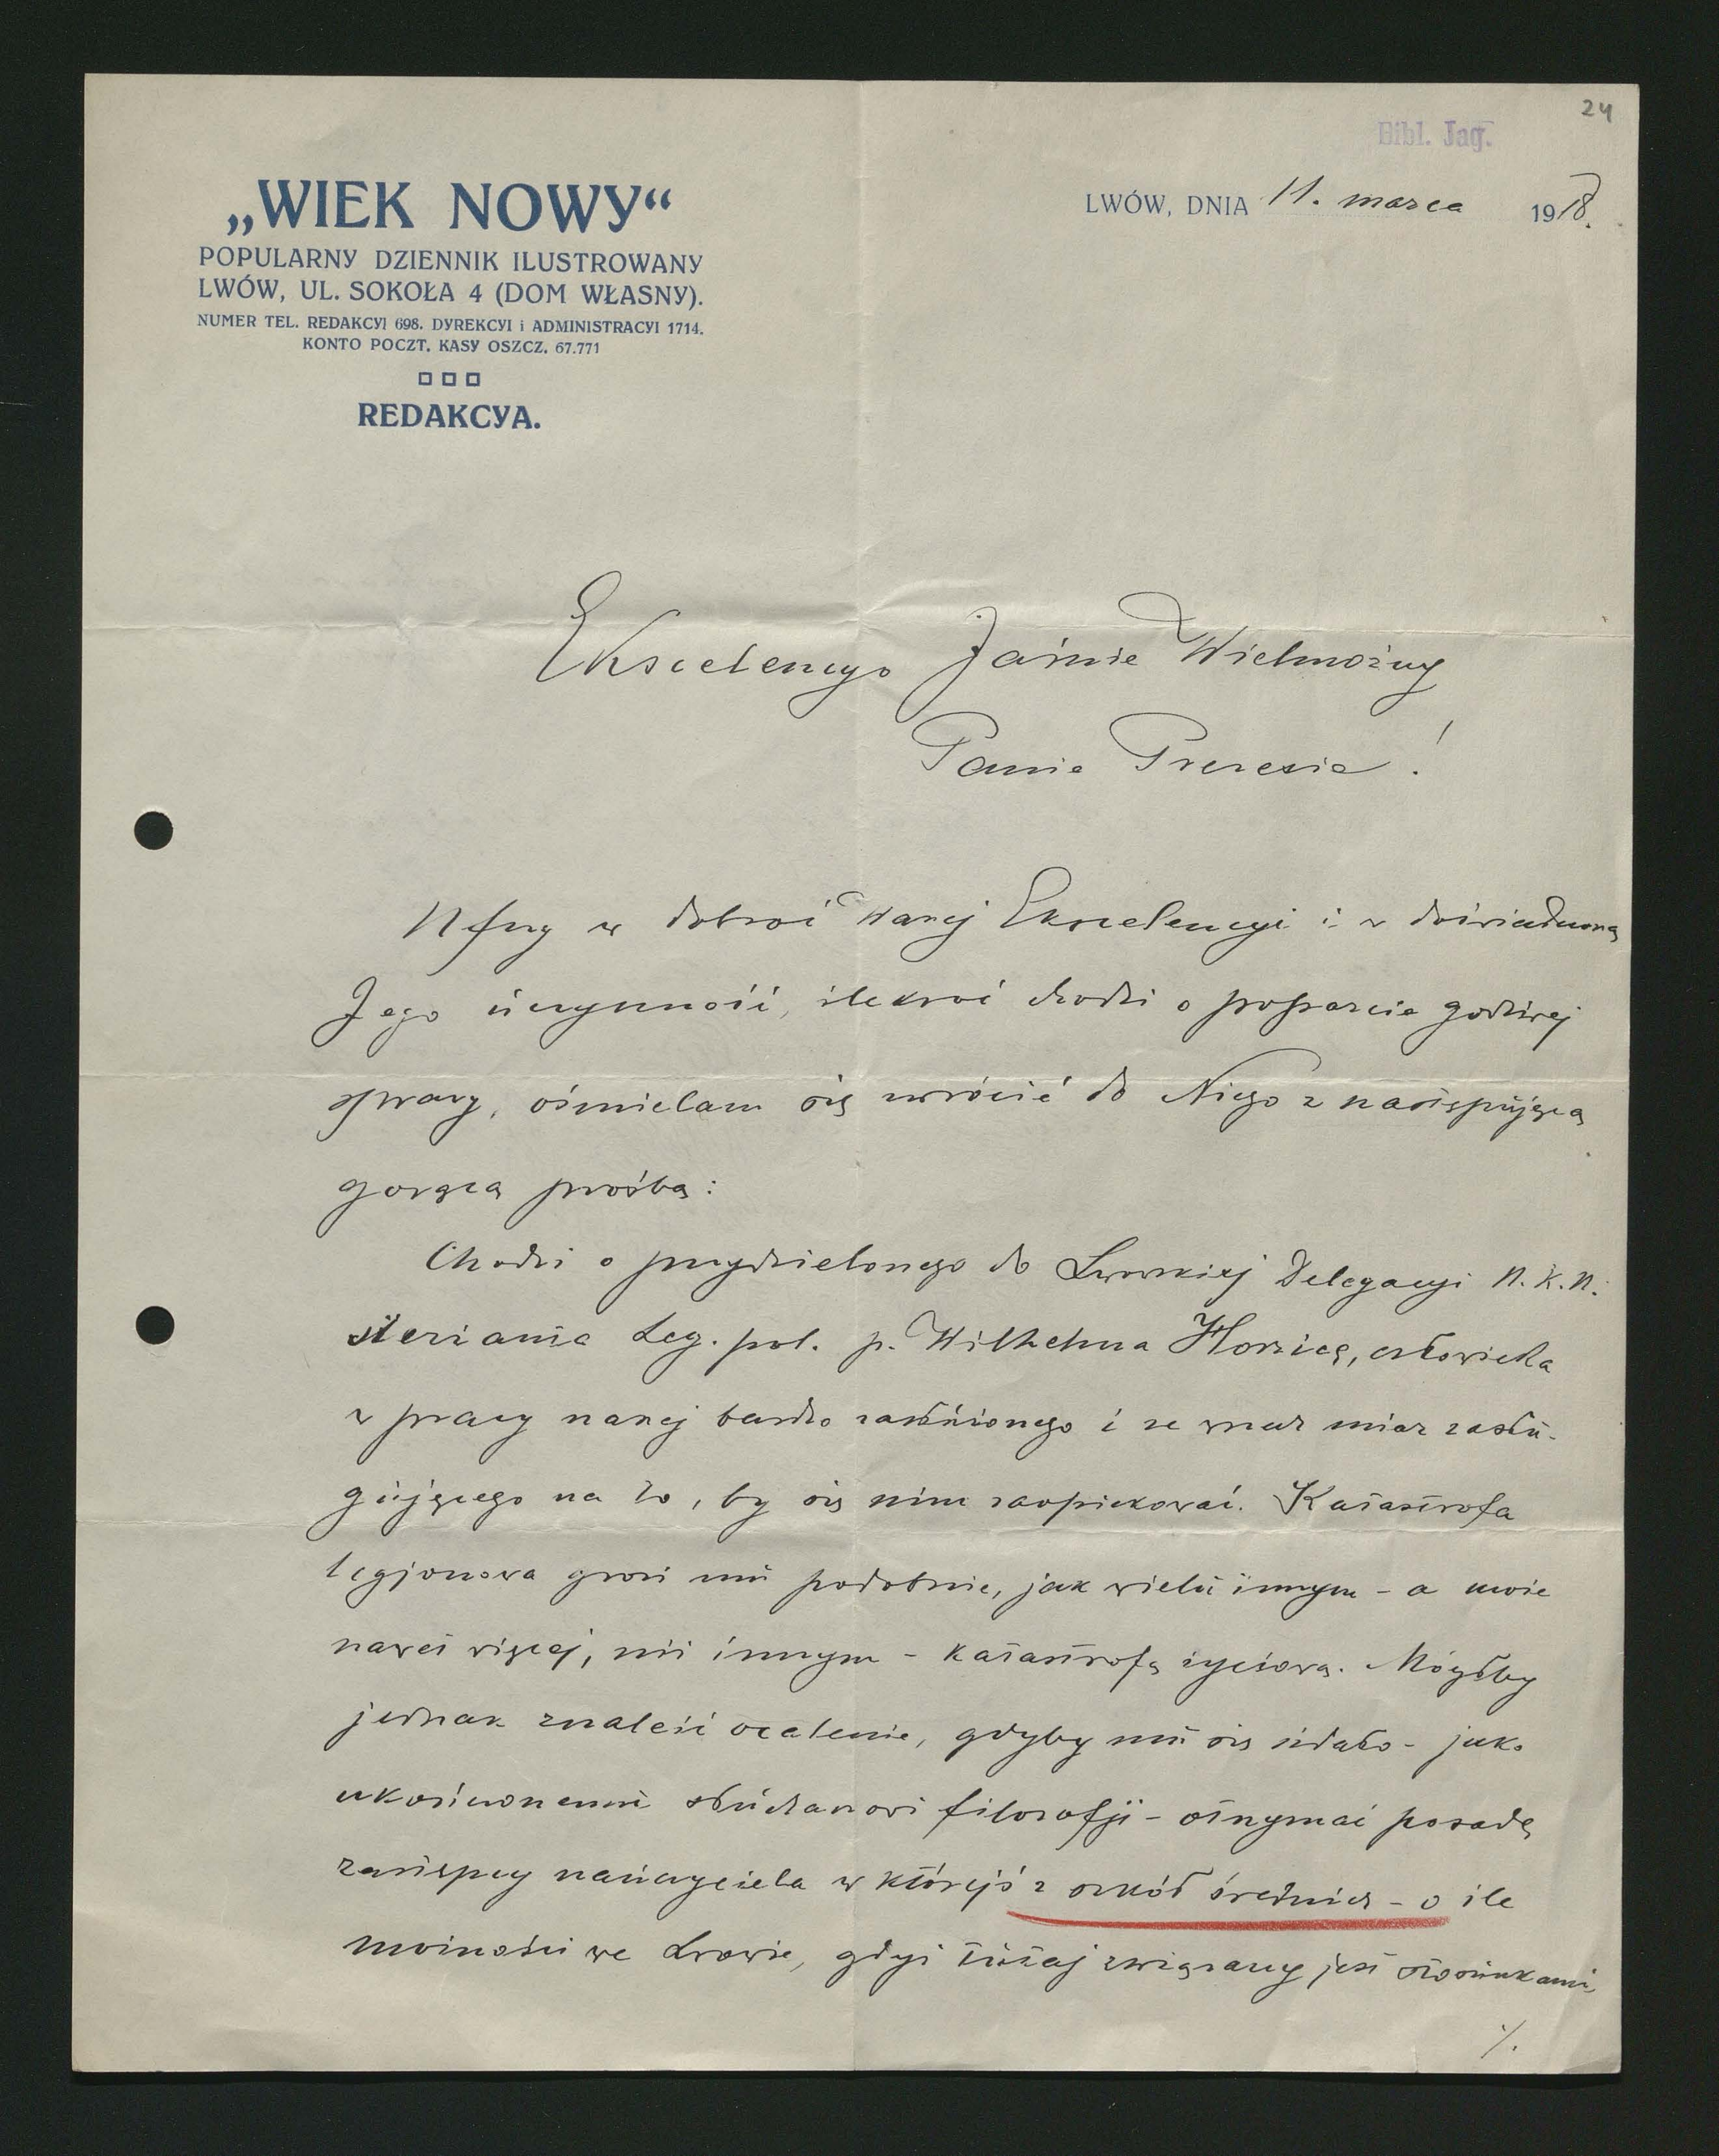 24
Bibl. Jag.
„WIEK NOWY“
POPULARNY DZIENNIK ILUSTROWANY
LWÓW, UL. SOKOŁA 4 (DOM WŁASNY).
NUMER TEL. REDAKCYI 698. DYREKCYI i ADMINISTRACYI 1714.
KONTO POCZT. KASY OSZCZ. 67.771
REDAKCYA.
LWÓW, DNIA 11. marca 1918.
Ekscelencyo Jaśnie Wielmożny
Panie Prezesie!
Ufny w dobroć Waszej Ekscelencyi i w doświadczoną
Jego uczynność, ilekroć chodzi o poparcie godziwej
sprawy, ośmielam się zwrócić do Niego z następującą
gorącą prośbą:
Chodzi o przydzielonego do Lwowskiej Delegacyi N.K.N.
sierżanta Leg. pol. p. Wilhelma Horzicę, człowieka
w pracy naszej bardzo zasłużonego i ze wszech miar zasłu-
gującego na to, by się nim zaopiekować. Katastrofa
legjonowa grozi mu podobnie, jak wielu innym - a może
nawet więcej, niż innym - katastrofą życiową. Mógłby
jednak znaleźć ocalenie, gdyby mu się udało - jako
ukończonemu słuchaczowi filozofji - otrzymać posadę
zastępcy nauczyciela w którejś z szkół średnich - o ile
możności we Lwowie, gdyż tutaj związany jest stosunkami
./.